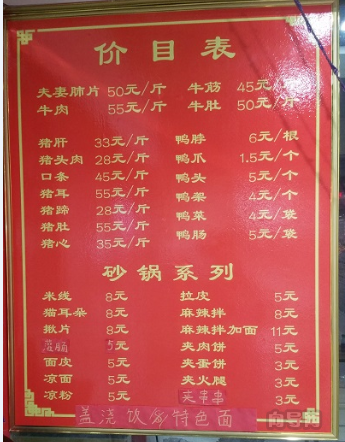 价目表
夫妻肺片 50元/斤 牛筋 45元/斤
牛肉 55元/斤 牛肚 50元/斤
猪肝 33元/斤 鸭脖 6元/根
猪头肉 28元/斤 鸭爪 1.5元/个
口条 45元/斤 鸭头 5元/个
猪耳 55元/斤 鸭架 4元/个
猪蹄 28元/斤 鸭菜 4元/袋
猪肚 55元/斤 鸭肠 5元/袋
猪心 35元/斤
砂锅系列
米线 8元 拉皮 5元
猫耳朵 8元 麻辣拌 8元
揪片 8元 麻辣拌加面 11元
5元 夹肉饼 5元
面皮 5元 夹蛋饼 3元
凉面 5元 夹火腿 3元
凉粉 5元 夹串串 3元
盖浇饭 特色面